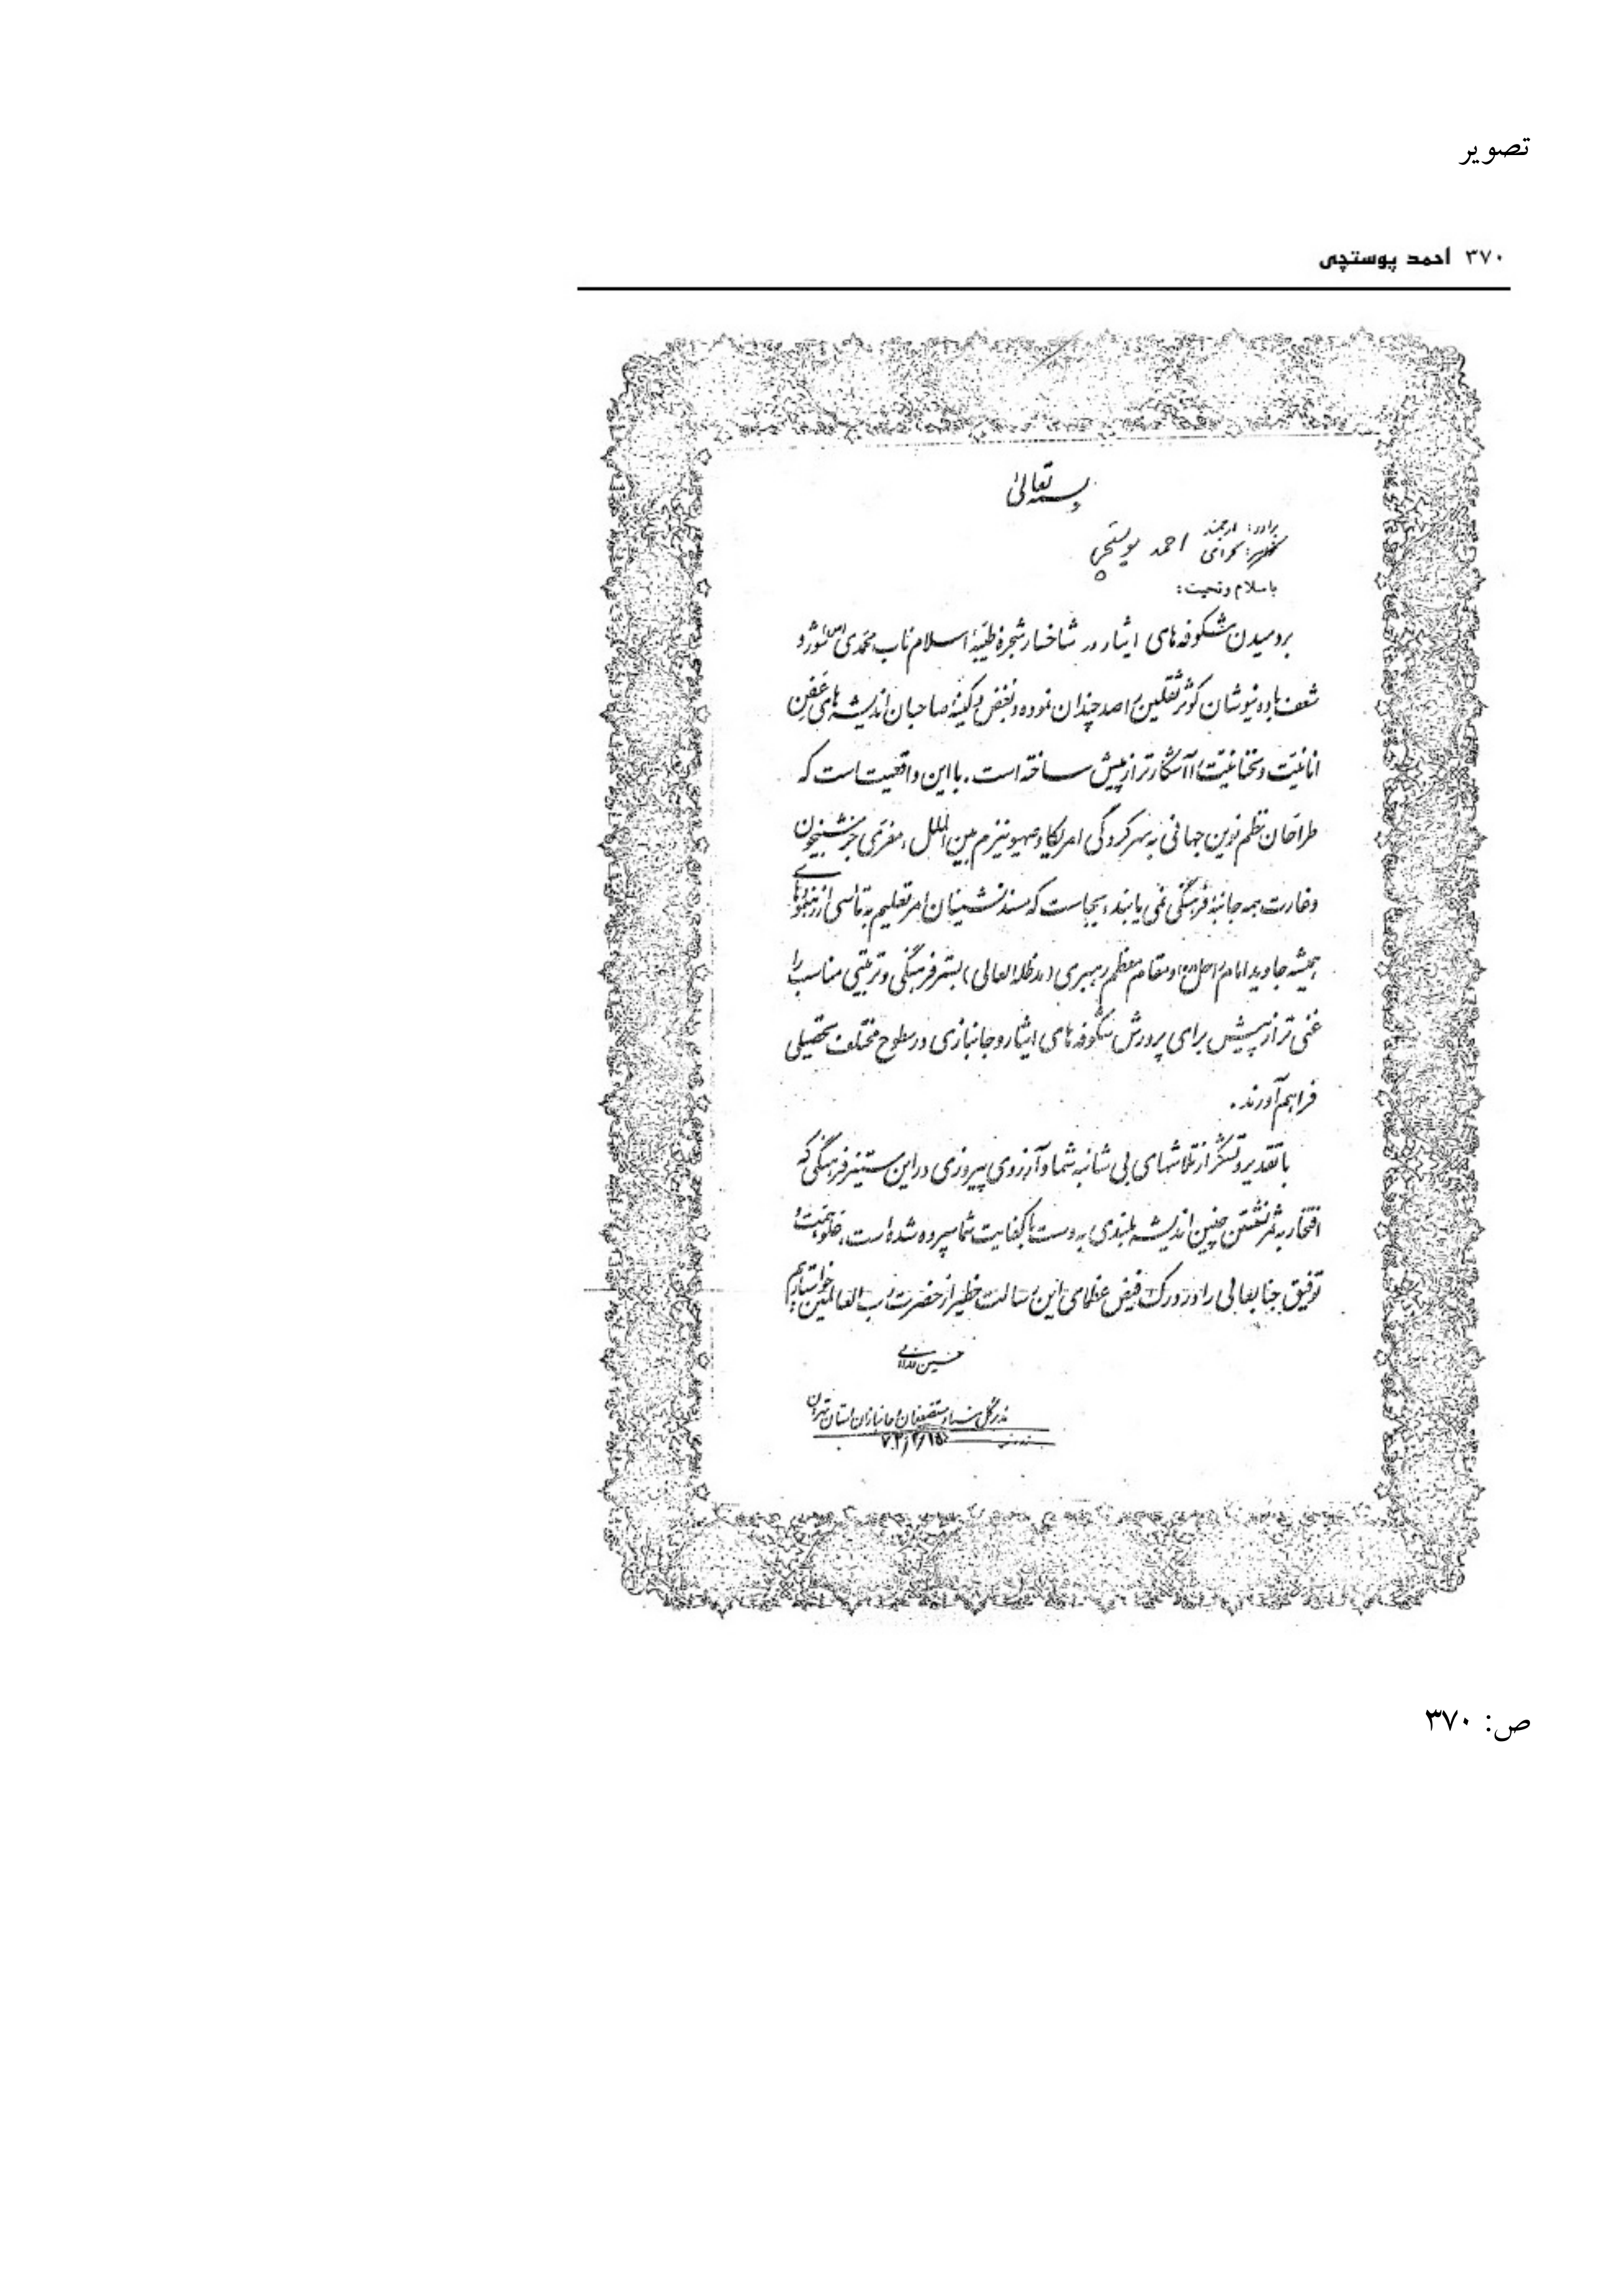 تصویر
۳۷۰ احمد پوستچی
بسمه تعالی
برادر: ارجمند
خواهر: گرامی احمد پوستچی
با سلام و تحیت:
بردمیدن شکوفه‌های ایثار در شاخسار شجرهٔ طیّبهٔ اسلام ناب محمدی (ص) شور و
شعف باده نیوشان کوثر ثقلین را صد چندان نموده و بغض و کینهٔ صاحبان اندیشه‌های عَفِن
انانیّت و را آشکارتر از پیش ساخته است. با این واقعیت است که
طراحان نظم نوین جهانی به سرکردگی امریکا و صهیونیزم بین الملل، مفرّی جز شبیخون
و غارت همه جانبهٔ فرهنگی نمی‌یابند، بجاست که مسند نشینان امر تعلیم به تأسی از رهنمودهای
همیشه جاوید امام راحل (ره) و مقام معظم رهبری (مدظله العالی) بستر فرهنگی و تربیتی مناسب را
غنی تر از پیش برای پرورش شکوفه‌های ایثار و جانبازی در سطوح مختلف تحصیلی
فراهم آورند.
با تقدیر و تشکر از تلاشهای بی شائبه شما و آرزوی پیروزی در این ستیز فرهنگی که
افتخار به ثمر نشستن چنین اندیشه بلندی به دست با کفایت شما سپرده شده است، علو همت و
توفیق جنابعالی را در درک فیض عظمای این رسالت خطیر از حضرت رب العالمین خواستاریم.
حسین
مدیرکل بنیاد مستضعفان و جانبازان استان تهران
۷۳/۲/۱۵
ص: ۳۷۰